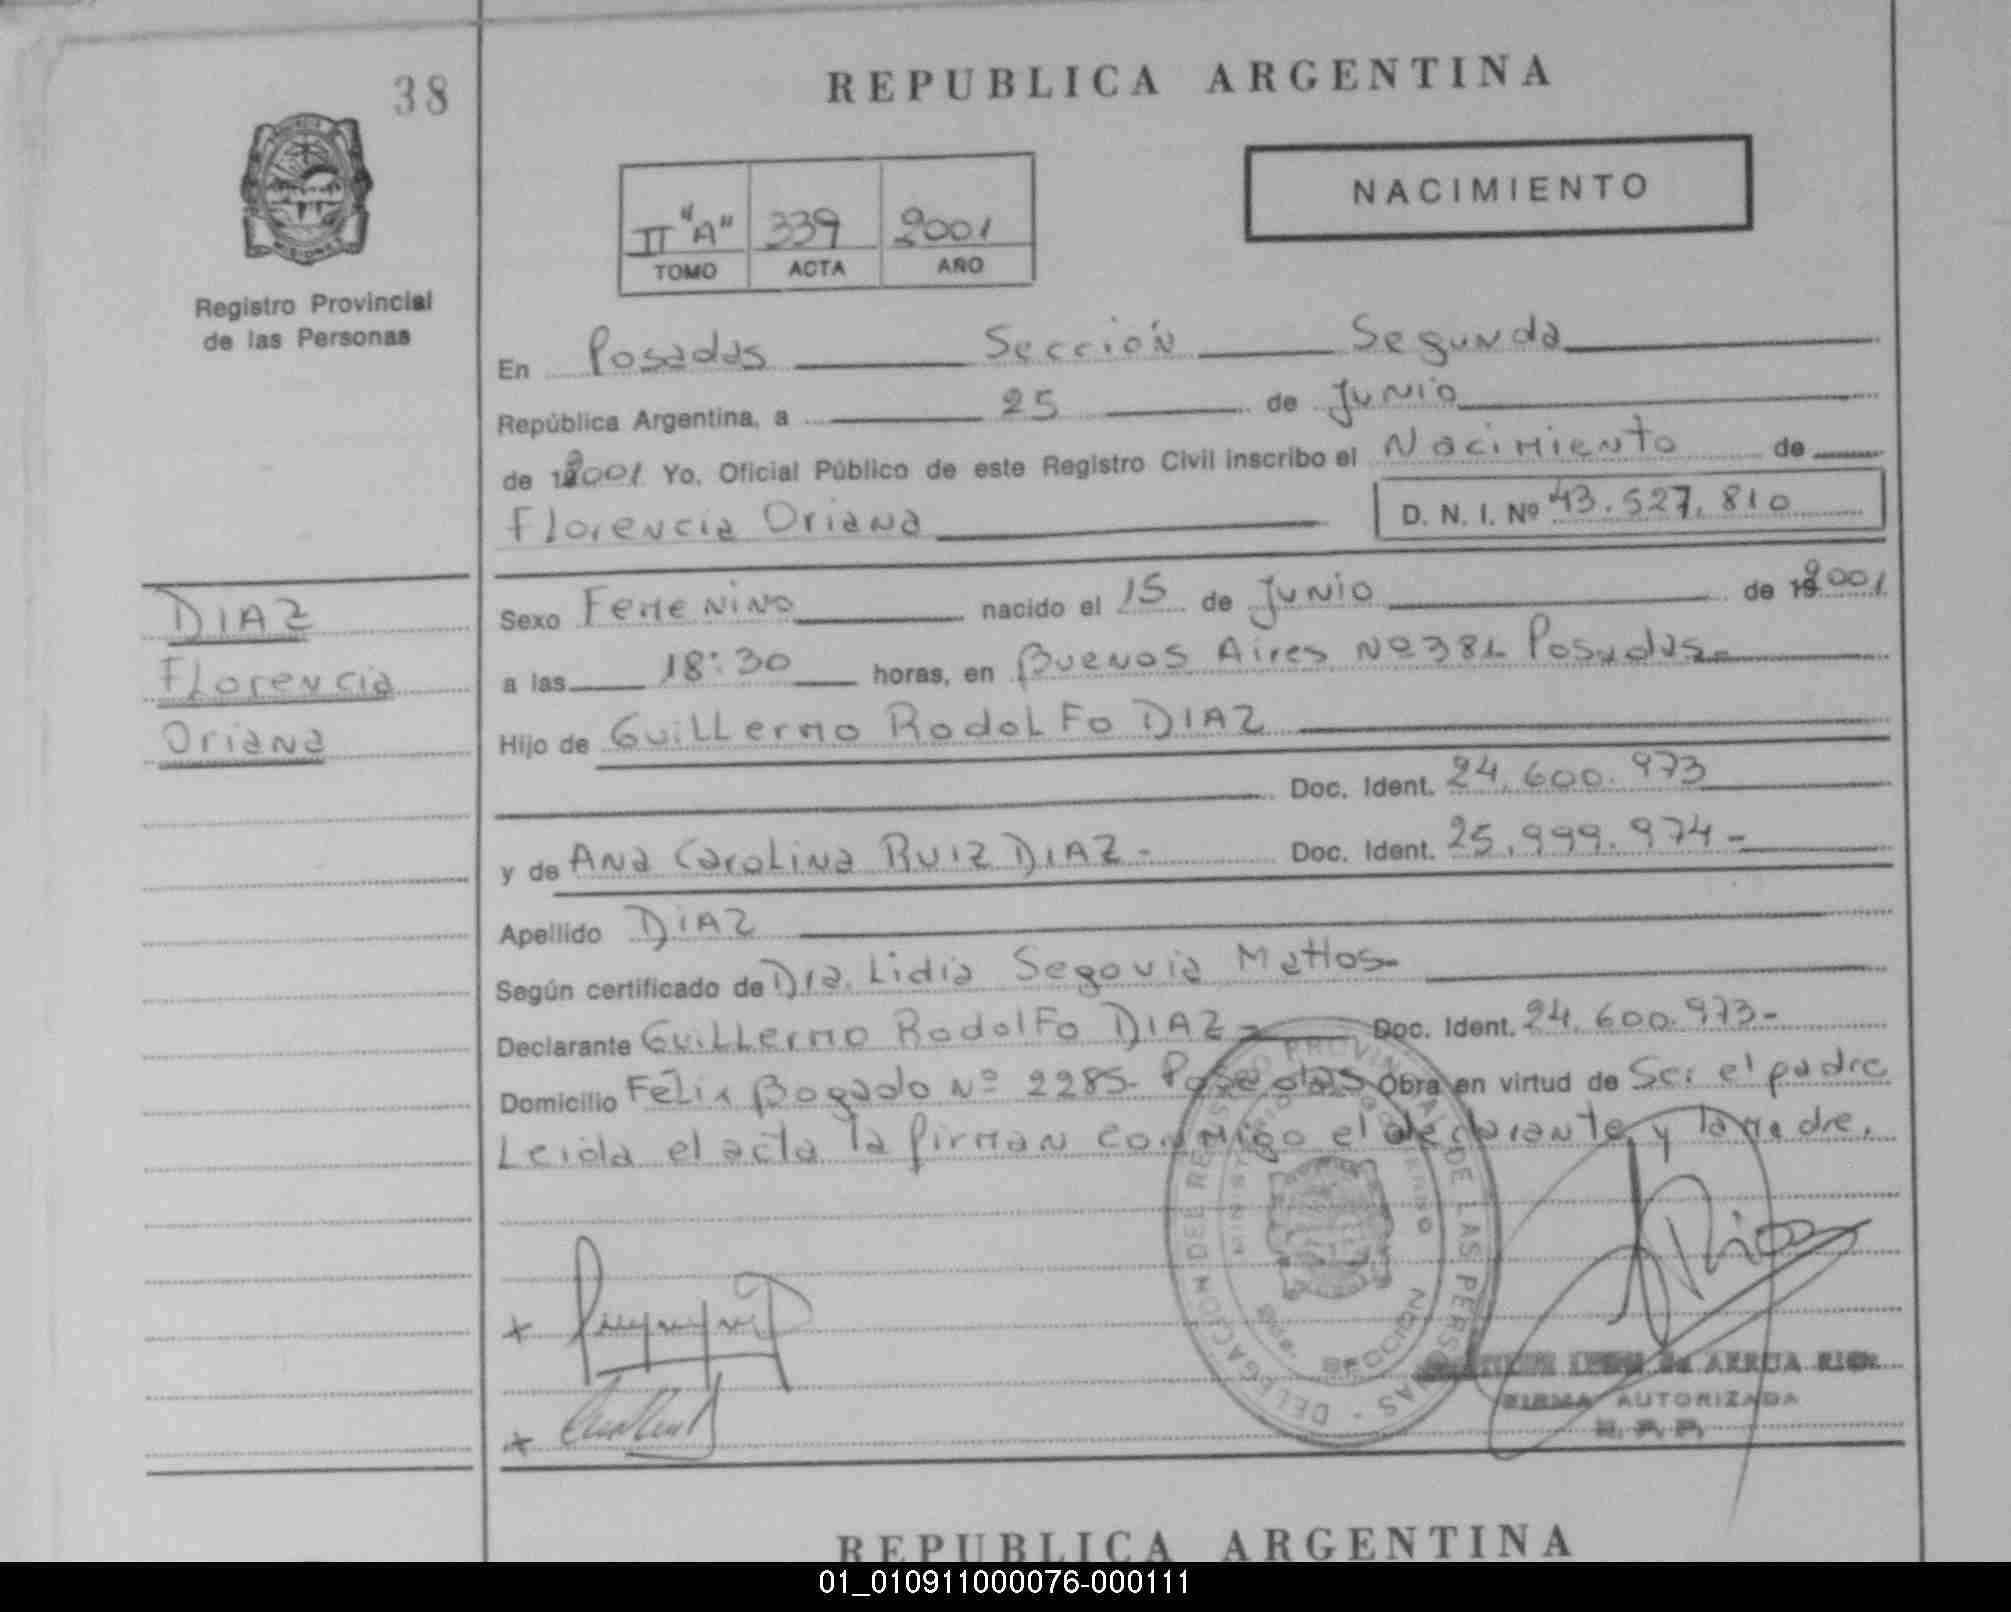 38
REPUBLICA ARGENTINA
NACIMIENTO
II "A" 339 2001
TOMO ACTA AÑO
Registro Provincial
de las Personas
En Posadas Sección Segunda
República Argentina, a 25 de Junio
de 2001 Yo, Oficial Público de este Registro Civil inscribo el Nacimiento de
Florencia Oriana D. N. I. Nº 43.527.810
DIAZ
Florencia
Oriana
Sexo Femenino nacido el 15 de Junio de 2001
a las 18:30 horas, en Buenos Aires Nº 381 Posadas.-
Hijo de Guillermo Rodolfo DIAZ
Doc. Ident. 24.600.973
y de Ana Carolina RUIZ DIAZ.- Doc. Ident. 25.999.974-
Apellido DIAZ
Según certificado de Dra. Lidia Segovia Mattos-
Declarante Guillermo Rodolfo DIAZ- Doc. Ident. 24.600.973-
Domicilio Felix Bogado Nº 2285- Posadas Obra en virtud de Ser el padre
Leida el acta la firman conmigo el declarante y la madre.
DELEGACION DE REGISTRO PROVINCIAL DE LAS PERSONAS
SECCION
ARRUA RIOS
FIRMA AUTORIZADA
R. P. P.
REPUBLICA ARGENTINA
01_010911000076-000111